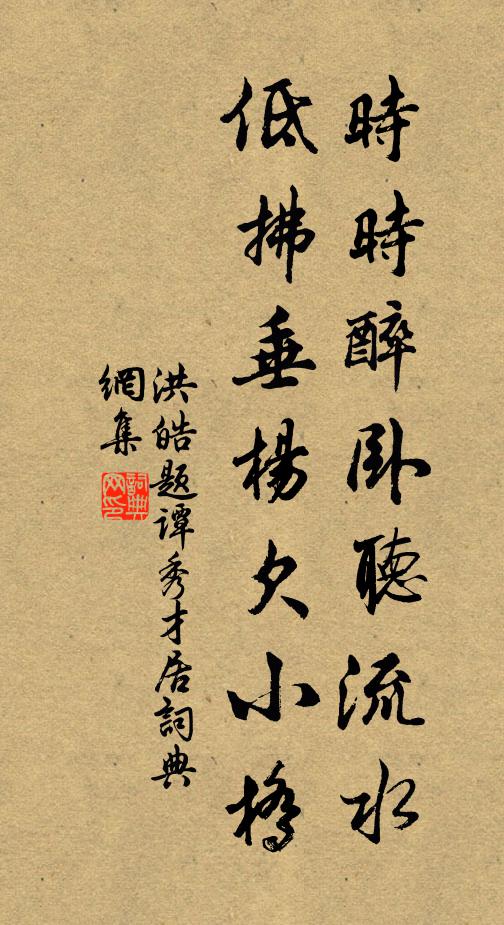 時時醉卧聽流水
低拂垂楊欠小橋
洪皓題譚秀才居詞典
網集
詞典网印